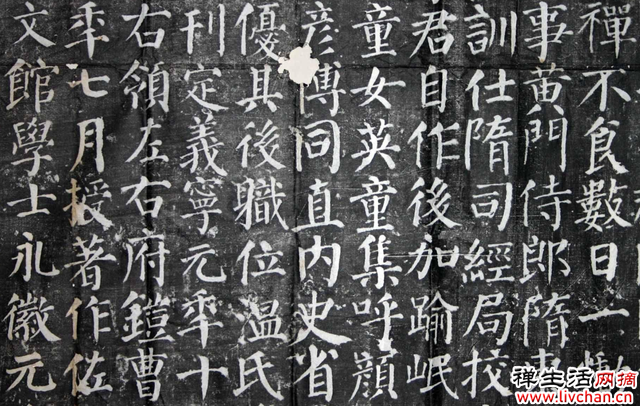 禪不食數日一
事黄門侍郎隋
訓仕隋司經局挍
君自作後加踰岷
童女英童集呼顔
彦博同直内史省
優其後職位温氏
刊定義寧元秊十
右領左右府鎧曹
秊七月授著作佐
文館學士永徽元
禅生活网摘
www.livchan.cn